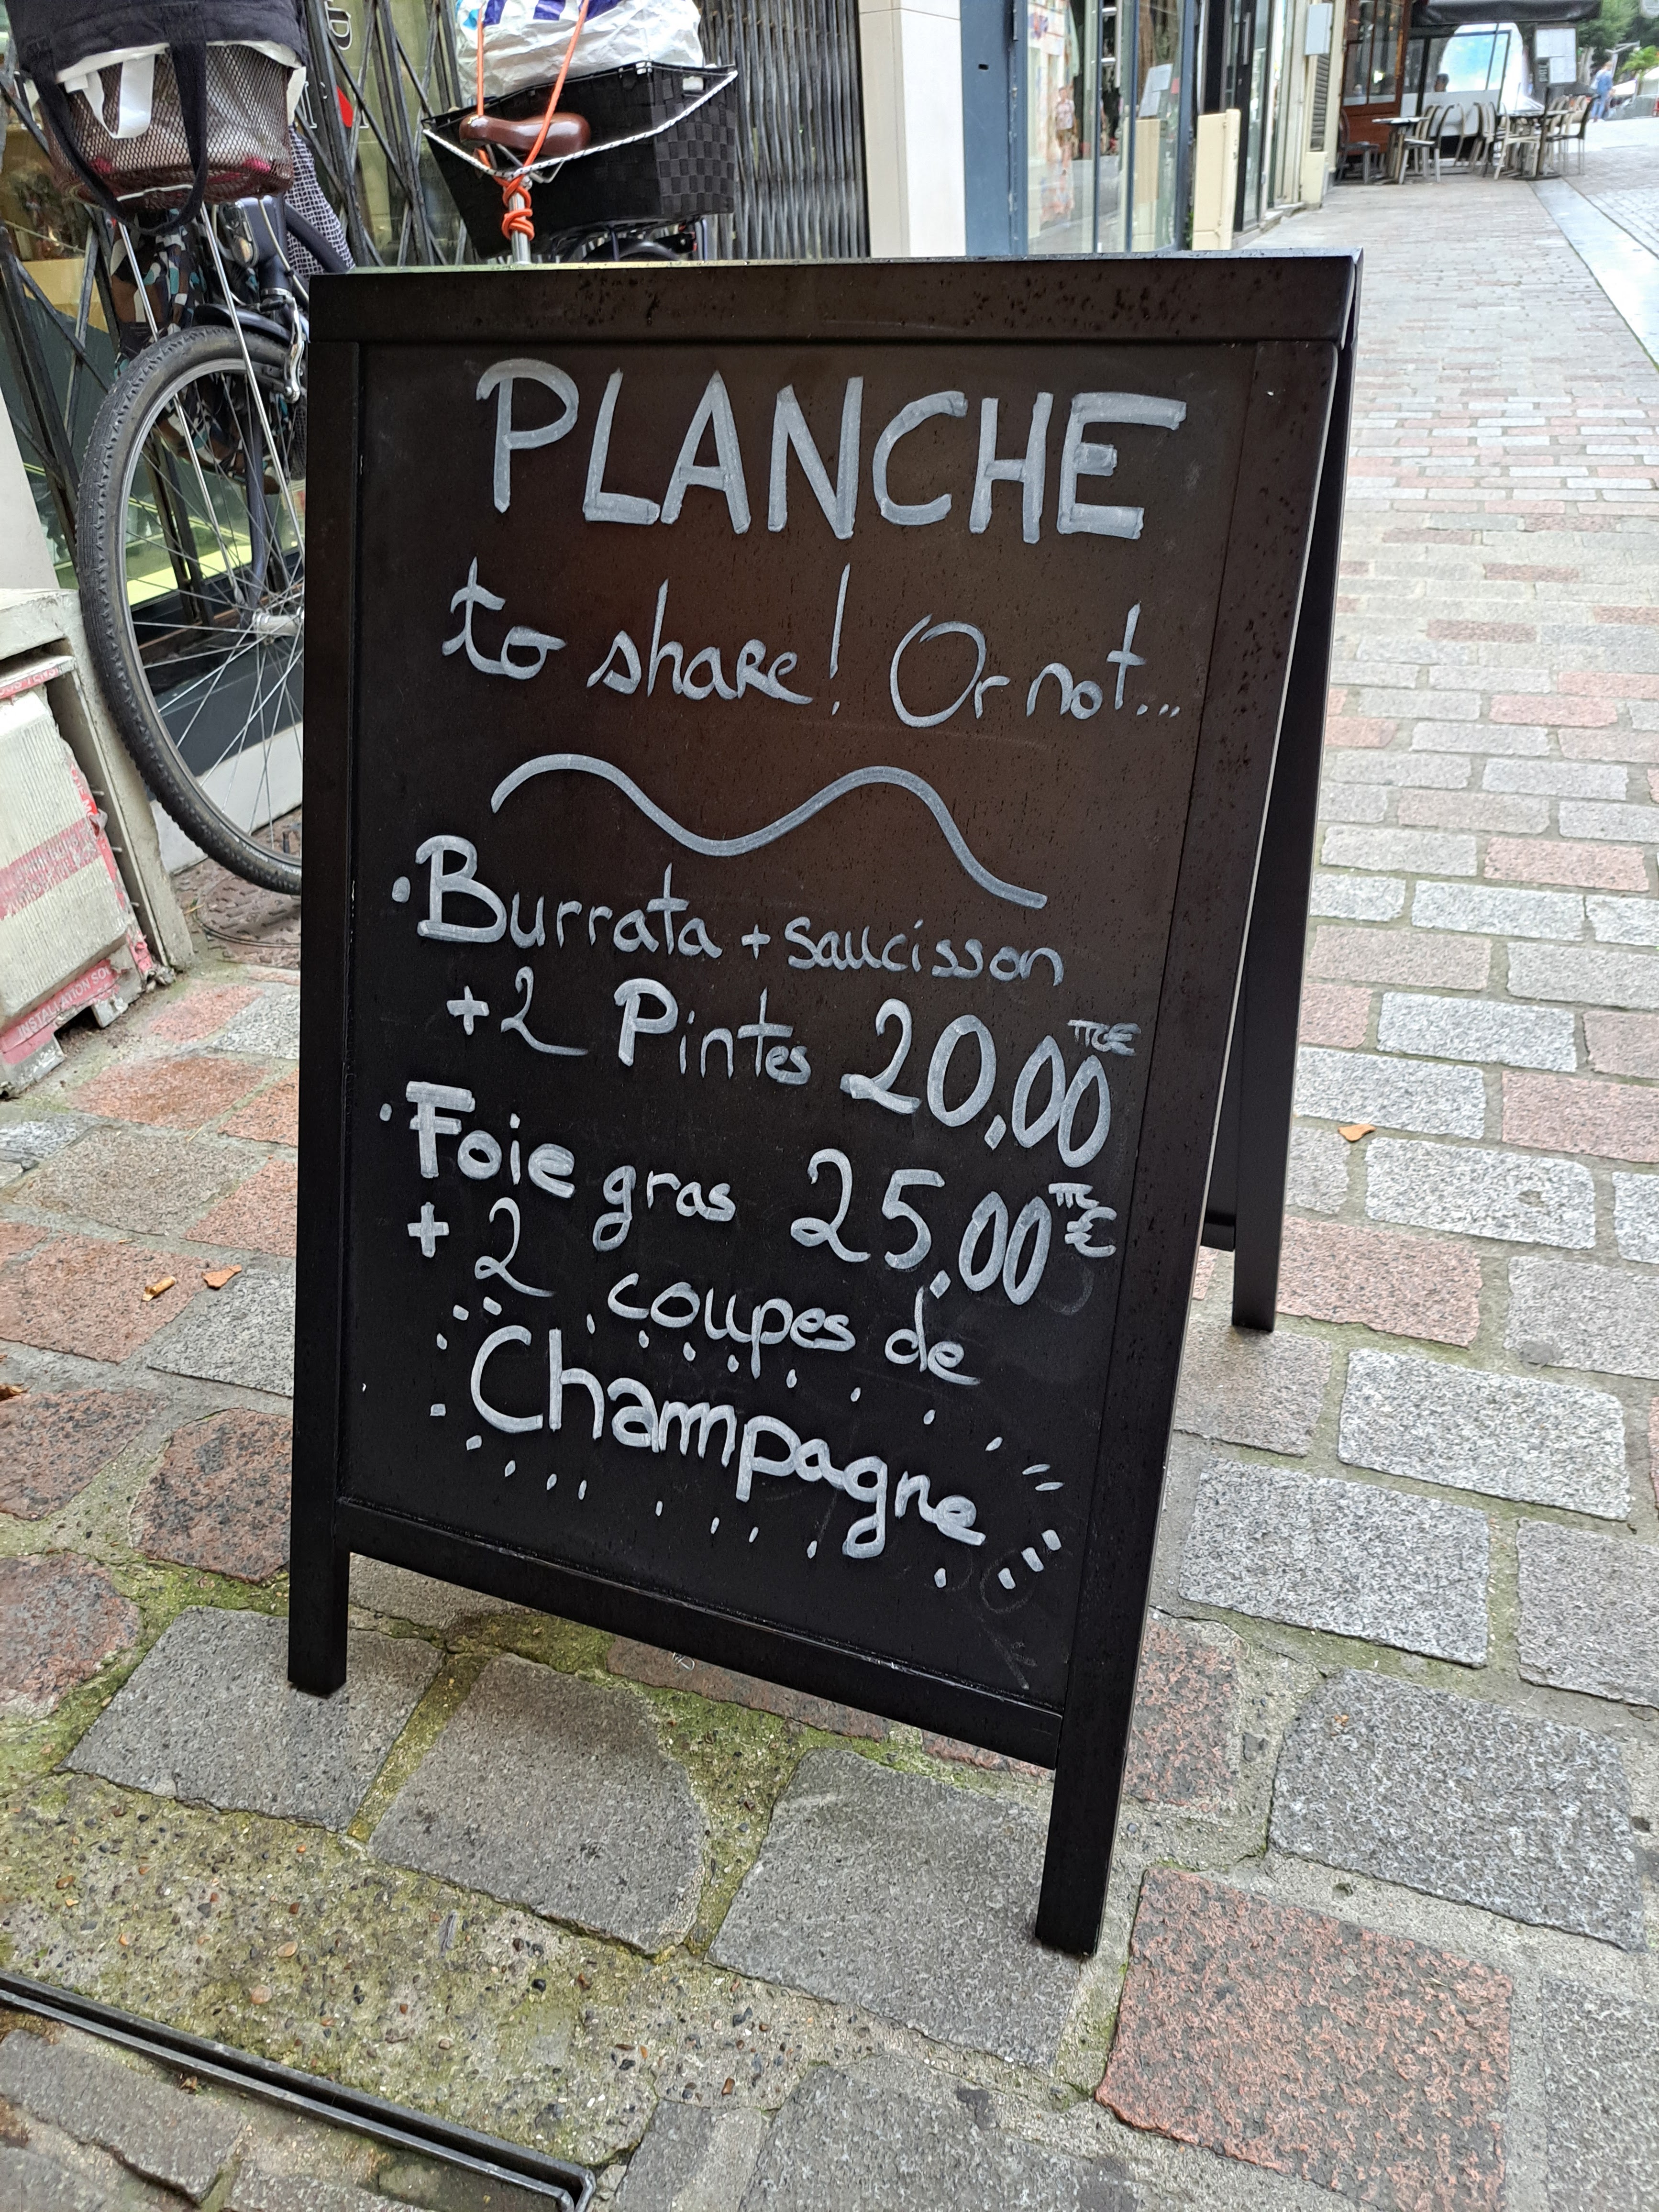 PLANCHE
to share! Or not...
• Burrata + saucisson
+ 2 Pintes 20.00 TTC€
• Foie gras 25.00 TTC€
+ 2 coupes de
Champagne